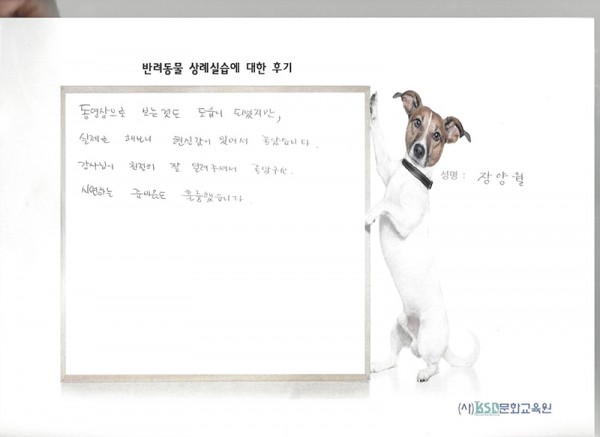 반려동물 상례실습에 대한 후기
동영상으로 보는것도 도움이 되었지만,
실제로 해보니 현실감이 있어서 좋았습니다.
강사님이 친절히 잘 알려주셔서 좋았구요.
시연하는 준비물도 훌륭했습니다.
성명 : 장양월
(사)KSD문화교육원